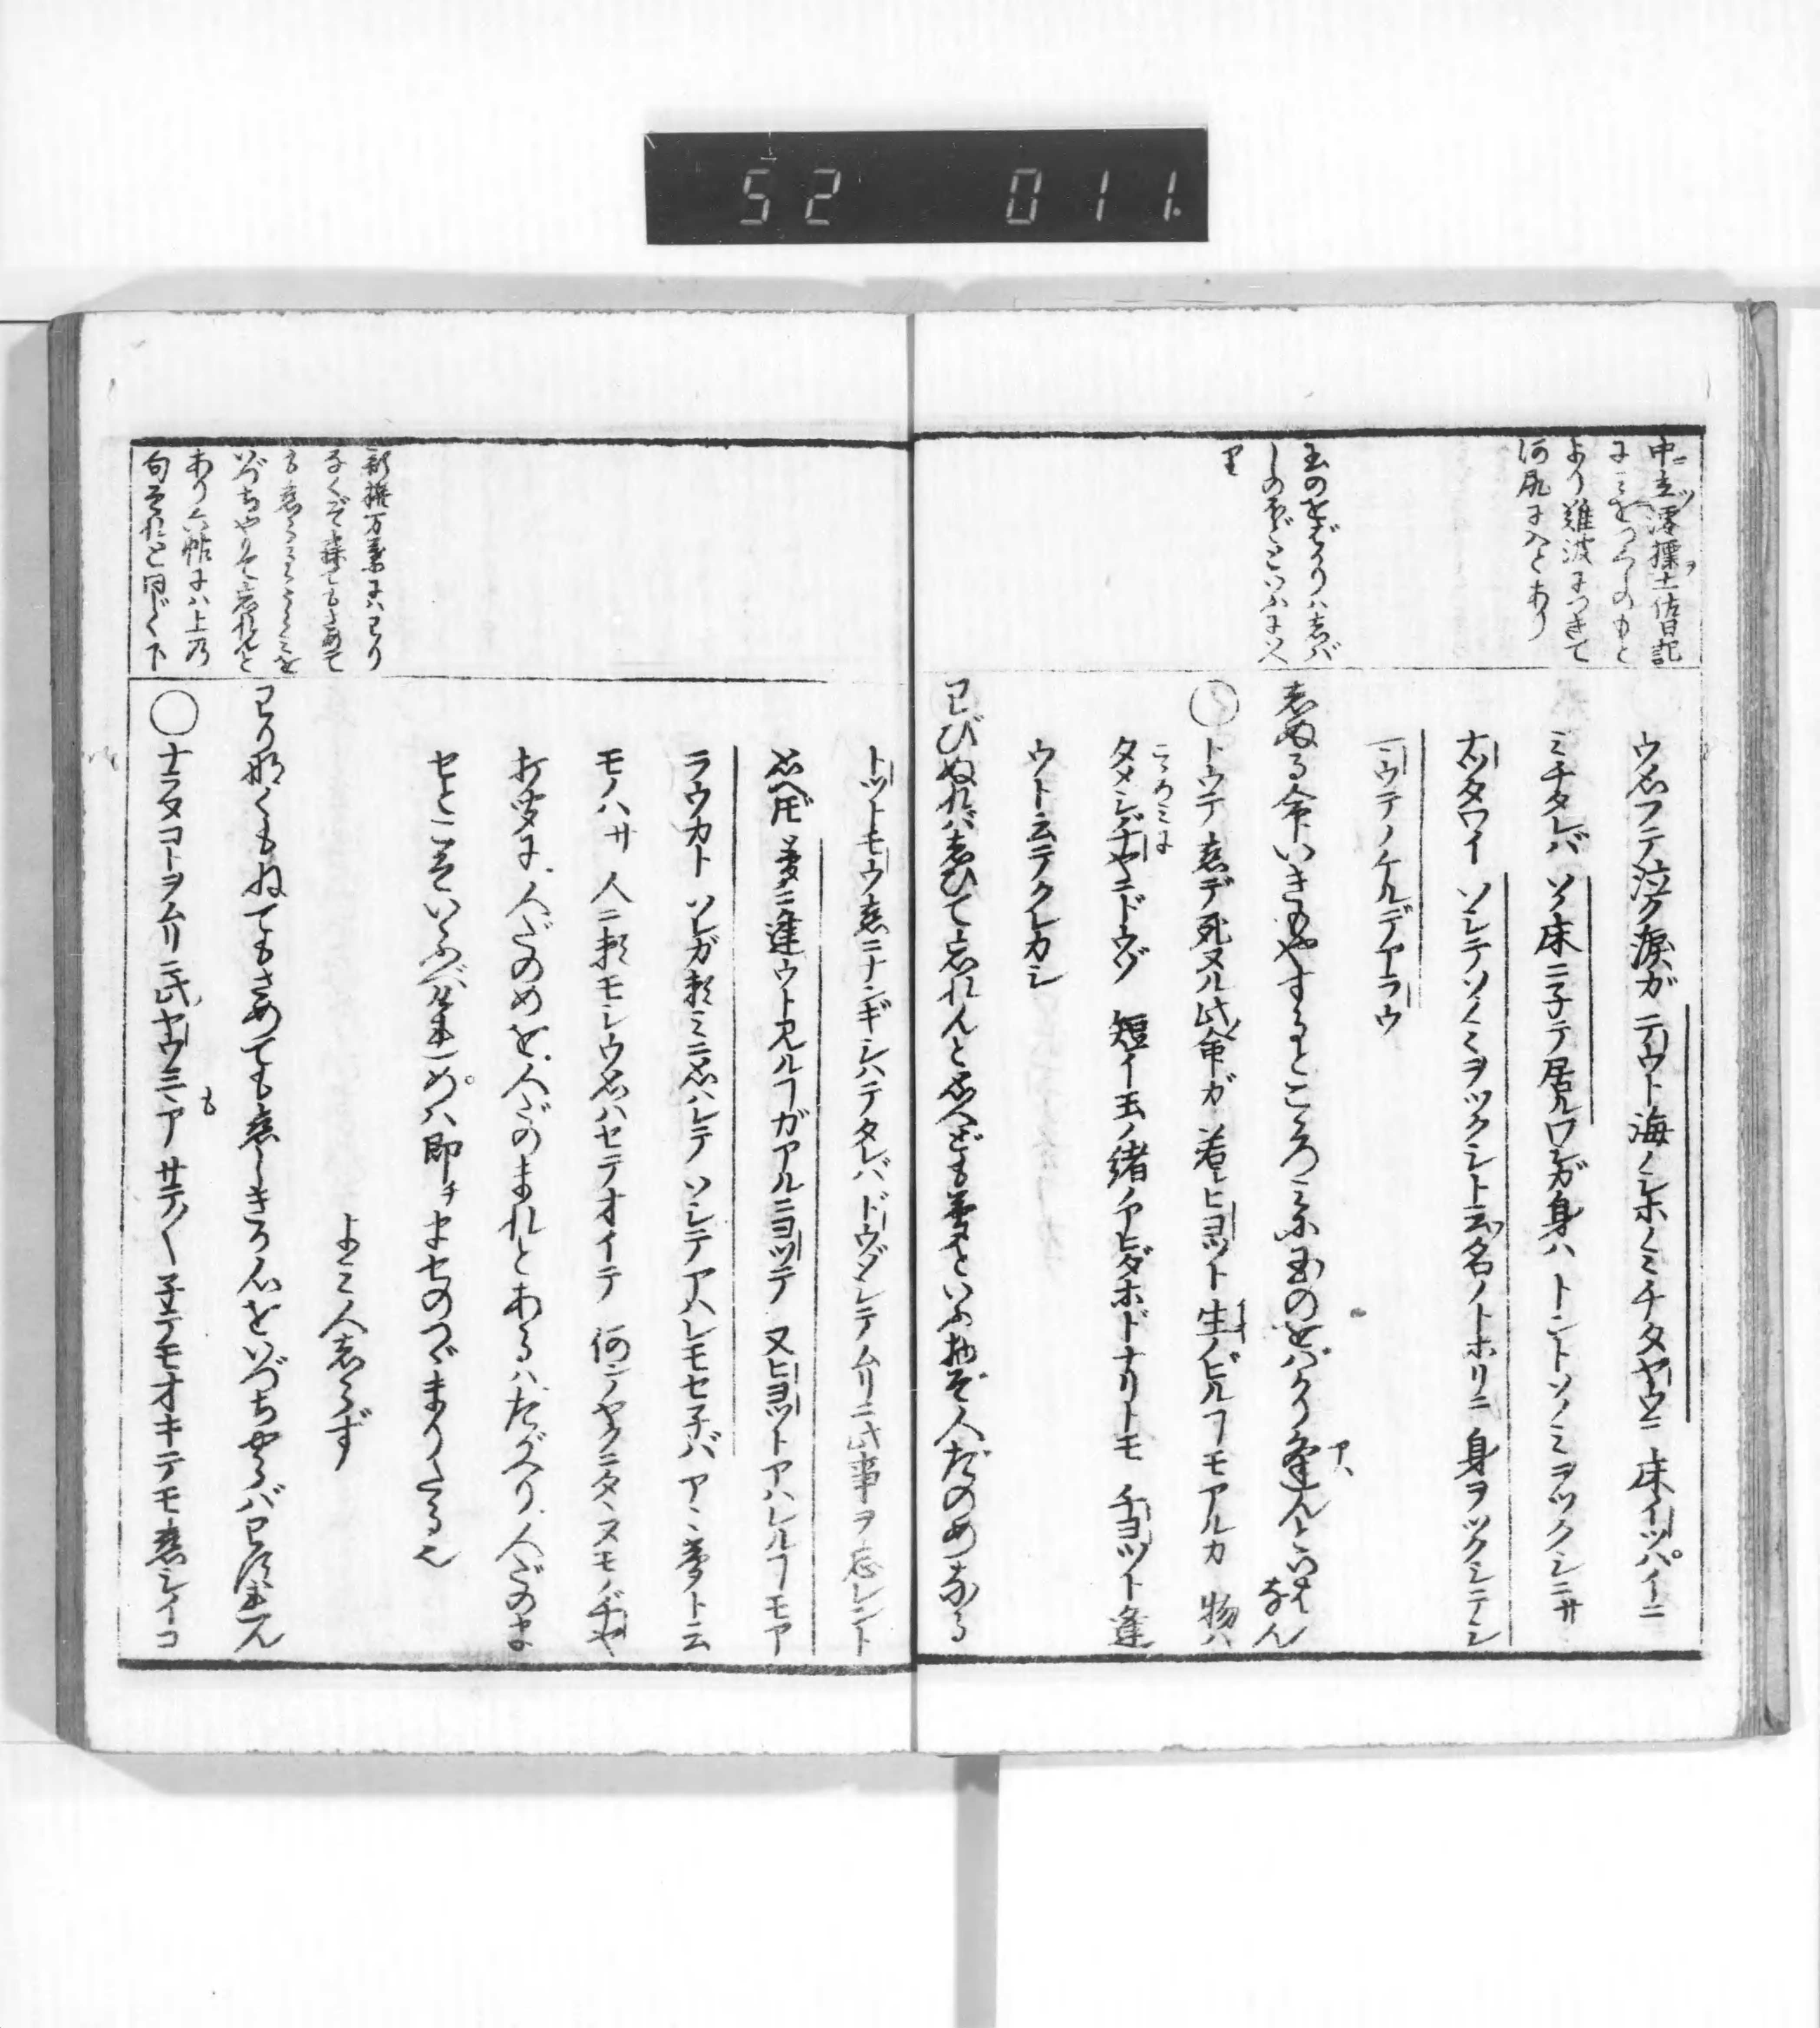 52 011.
申ニ立ツ澪標ヲ土佐日記
にみをつくしのもと
より難波につきて
河尻に入とあり
玉のをばかりハしバ
しのほどといふに同
じ
ウ思フテ泣ク涙ガ テウト海ノシホノミチタヤウニ 床イツパイニ
ミチタレバ ソノ床ニ子テ居ルワシガ身ハ トントソノミヲツクシニサ
ナツタワイ ソシテソノミヲツクシト云名ノトホリニ 身ヲツクシテシ
マウテノケルデアラウ
志ぬる命いきもやするところみに玉のをバかり逢ハんといはなん
トウテ恋デ死ヌル此命ガ 若シヒヨツト生ノビルヿモアルカ 物ハ
タメシヂヤニドウゾ 短イ玉ノ緒ノアヒダホドナリトモ チヨツト逢
こゝろミに
ウト云テクレカシ
わびぬれバ志ひて忘れんと思へども夢といふ物ぞ人だのめなる
新撰万葉にハわり
なくぞ寐てもさめて
も恋らるゝうらミを
いづちやりて忘れんと
あり六帖にハ上の
句それと同じく下
トツトモウ恋ニナンギシハテタレバ ドウゾシテムリニ此事ヲ忘レント
思ヘドモ 夢ニ逢ウト見ルヿガアルニヨツテ 又ヒヨツトアハレルヿモア
ラウカト ソレガ頼ミニ思ハレテ ソシテアハレモセ子バ アヽ夢ト云
モノハサ 人ニ頼モシウ思ハセテオイテ 何ンノヤクニタヽヌモノヂヤ
打聞に、人だのめを、人だのまれとあるハたがへり、人だのま
せとこそいふべけれ、めハ即チませのつゞまりたる也
よミ人志らず
わりなくもねてもさめても恋しきか心をいづちやらバわすれん
○ナラヌコトヲムリニ此ヤウニマア サテ〳〵 子テモオキテモ恋シイコ
も